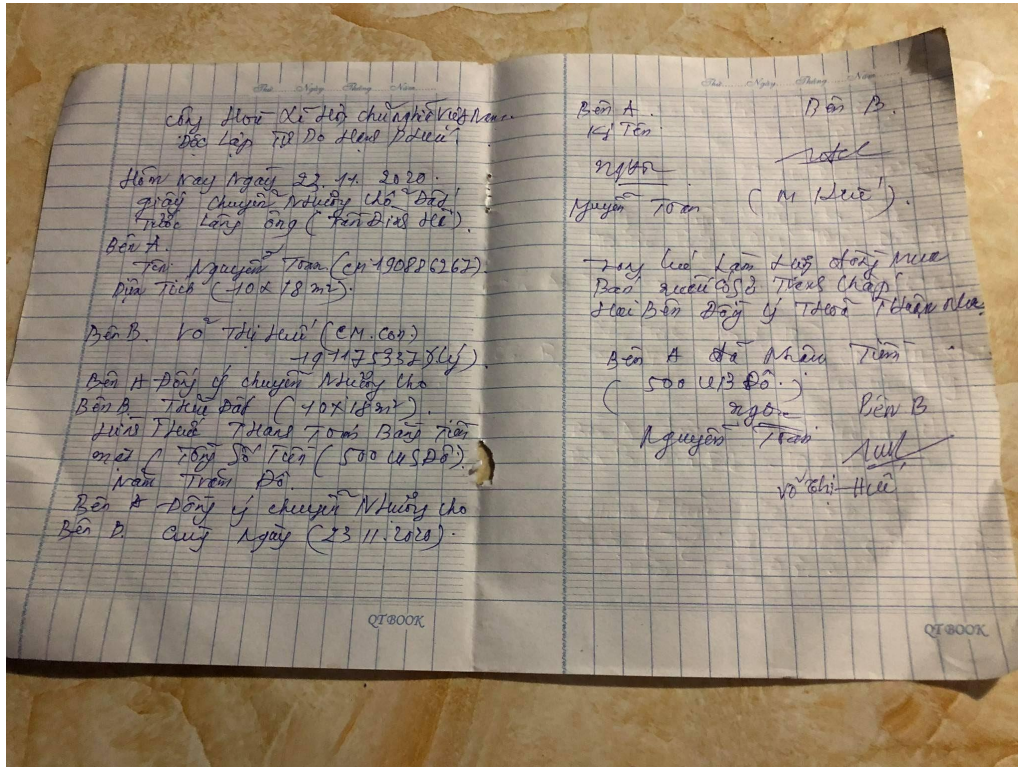 Thứ..... Ngày..... Tháng..... Năm.....
Cộng Hoà Xã Hội Chủ Nghĩa Việt Nam
Độc Lập Tự Do Hạnh Phúc
Hôm Nay Ngày 23.11.2020.
giấy chuyển Nhượng chổ Đất
Thuộc Lăng ông (Trần Đình
Bên A.
Tên Nguyễn Toan (CM 190886267).
Diện Tích (10 x 18 m²).
Bên B. Võ Thị Huế (CM. con)
191175337
Bên A Đồng ý chuyển Nhượng cho
Bên B. Thửa Đất (10 x 18 m²).
Hình Thức Thanh Toán Bằng Tiền
mặt (Tổng Số Tiền (500 US Đô).
Năm Trăm Đô.
Bên A Đồng ý chuyển Nhượng cho
Bên B. Cùng Ngày (23.11.2020).
QTBOOK
Thứ..... Ngày..... Tháng..... Năm.....
Bên A. Bên B.
Ký Tên
Nguyễn Toan (M Huế).
Trong Lúc Làm Hợp đồng Mua
Bán Tranh Chấp
Hai Bên Đồng ý Thoả Thuận
Bên A Đã Nhận Tiền
(500 US Đô.)
Bên B
Nguyễn Toan
Võ Thị Huế
QTBOOK